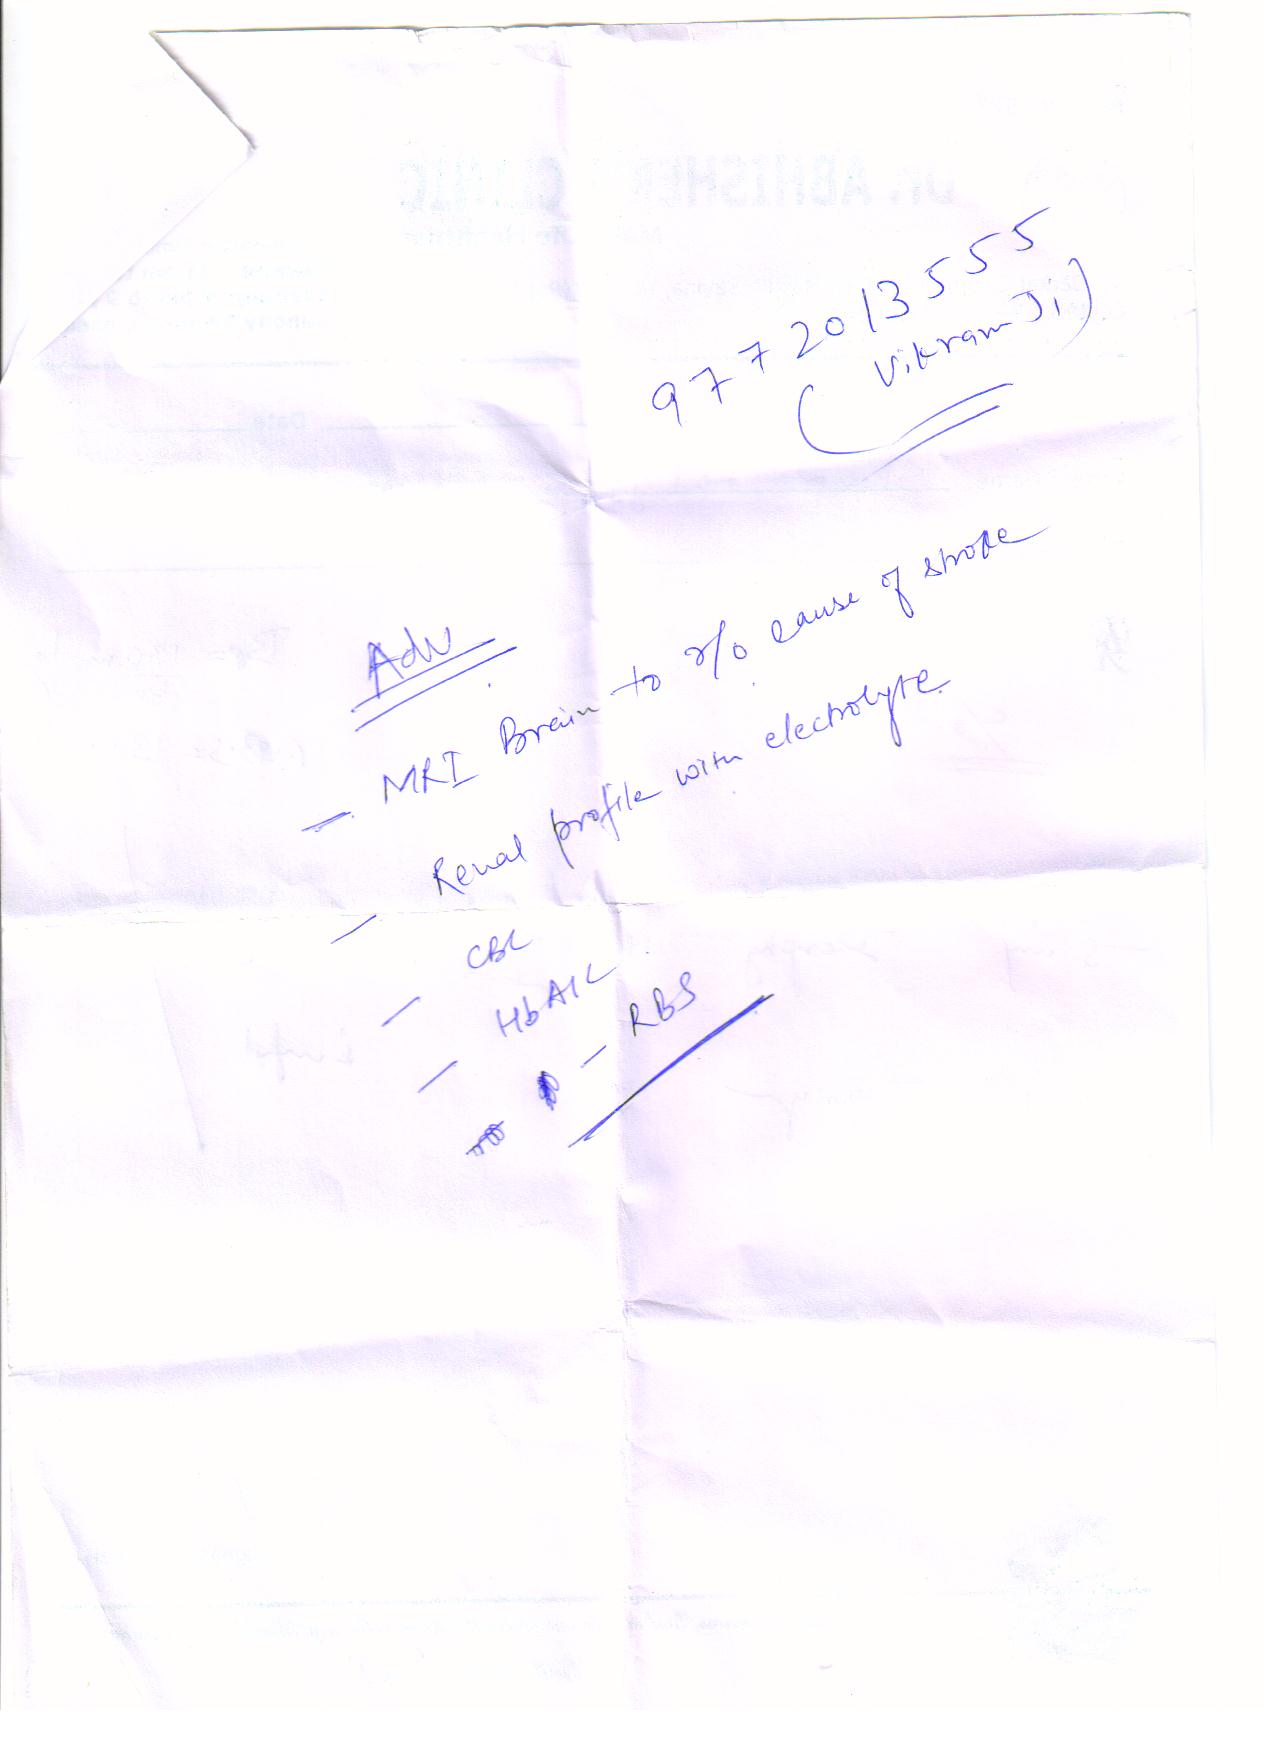 9772013555
(Vikram Ji)
Adv
- MRI Brain to r/o cause of stroke
- Renal profile with electrolyte.
- CBC
- HbA1C
- RBS